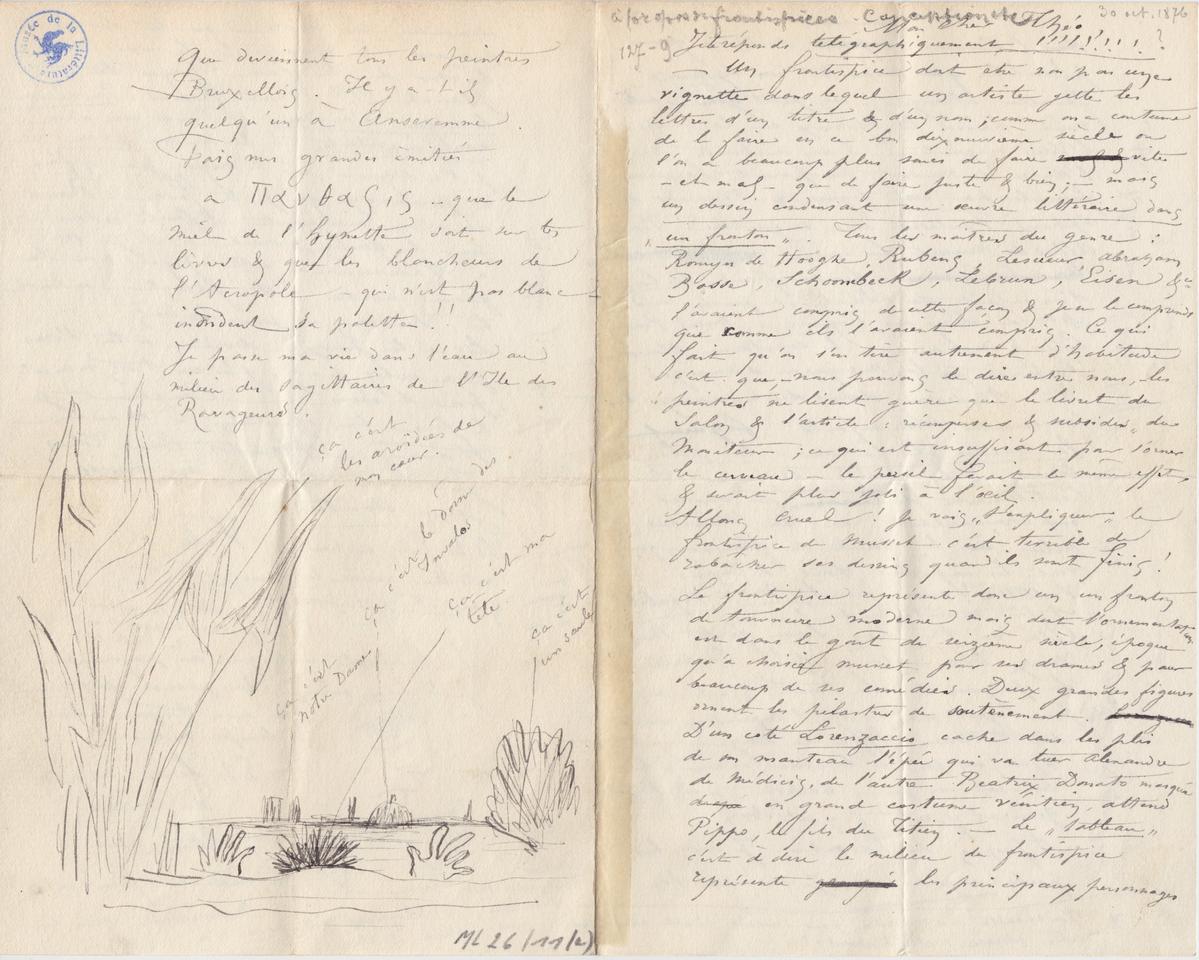 Musée de la Littérature
Que deviennent tous les peintres
Bruxellois. Il y a t'il
quelqu'un à Anseremme.
Fais mes grandes amitiés
a Πανδαςις - que le
miel de l'Hymette soit sur tes
livres & que les blancheurs de
l'Acropole - qui n'est pas blanc -
inondent sa palette !!
Je passe ma vie dans l'eau au
milieu des sagittaires de l'Ile des
Ravageurs.
ça c'est
les aroïdées de
mon cœur.
ça c'est le dôme des
Invalos
ça c'est ma
tête
ça c'est
un saule
ça c'est
notre Dame
ML 26/11/(2)
à propos de frontispices - Conception etc
30 oct. 1876
127-9
Mon cher Théo
Je te réponds télégraphiquement !!!!!!!! ?
— Un frontispice doit etre non pas une
vignette dans lequel un artiste jette les
lettres d'un titre & d'un nom ; comme on a coutume
de le faire en ce bon dixneuvième siècle ou
l'on a beaucoup plus souci de faire vite
- et mal - que de faire juste & bien ; - mais
un dessin condensant une œuvre littéraire dans
„ un fronton „. Tous les maitres du genre :
Romyn de Hooghe, Rubens, Lesueur Abraham
Bosse, Schoonebeck, Lebrun, Eisen &c
l'avaient compris de cette façon & je ne le comprends
que comme ils l'avaient compris. Ce qui
fait qu'on s'en tire autrement d'habitude
c'est que, - nous pouvons le dire entre nous, - les
peintres ne lisent guère que le livret du
Salon & l'article : récompenses & subsides „ du
Moniteur ; ce qui est insuffisant pour s'orner
le cerveau - le persil ferait le meme effet,
& serait plus joli à l'œil.
Allons cruel ! Je vais „ t'expliquer „ le
frontispice de Musset c'est terrible de
rabâcher ses dessins quand ils sont finis !
Le frontispice représente donc un un fronton
de tournure moderne mais dont l'ornementation
est dans le goût du seizième siècle, époque
qu'a choisie Musset pour ses drames & pour
beaucoup de ses comédies. Deux grandes figures
ornent les pilastres de soutènement.
D'un coté Lorenzaccio cache dans les plis
de son manteau l'épée qui va tuer Alexandre
de Médicis, de l'autre Beatrix Donato masquée
en grand costume vénitien, attend
Pippo, le fils du Titien. — Le „ tableau „
c'est à dire le milieu du frontispice
représente les principaux personnages